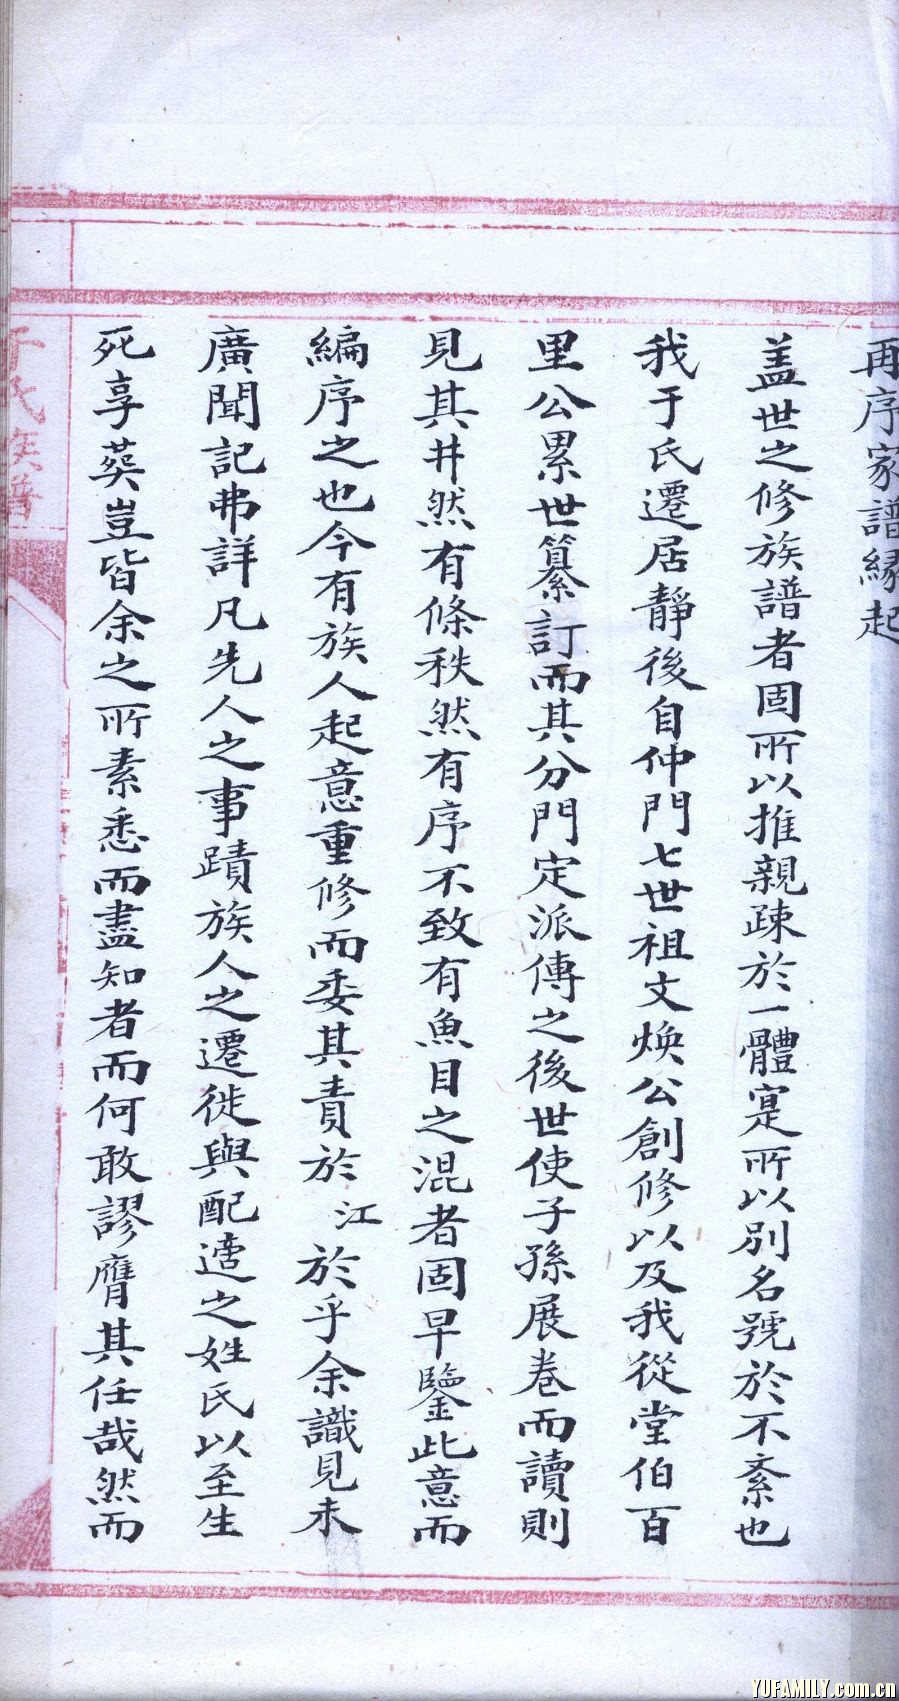 再序家譜緣起
盖世之修族譜者固所以推親疎於一體寔所以別名號於不紊也
我于氏遷居靜後自仲門七世祖文煥公創修以及我從堂伯百
里公累世纂訂而其分門定派傳之後世使子孫展卷而讀則
見其井然有條秩然有序不致有魚目之混者固早鑒此意而
編序之也今有族人起意重修而委其責於江於乎余識見未
廣聞記弗詳凡先人之事蹟族人之遷徙與配適之姓氏以至生
死享葬豈皆余之所素悉而盡知者而何敢謬膺其任哉然而
于氏族譜
YUFAMILY.com.cn